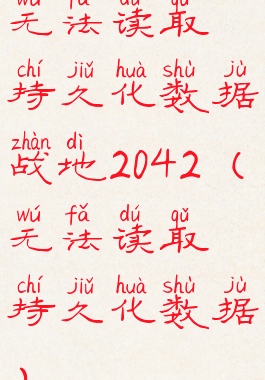 wú fǎ dú qǔ
无法读取
chí jiǔ huà shù jù
持久化数据
zhàn dì
战地2042（
wú fǎ dú qǔ
无法读取
chí jiǔ huà shù jù
持久化数据
）